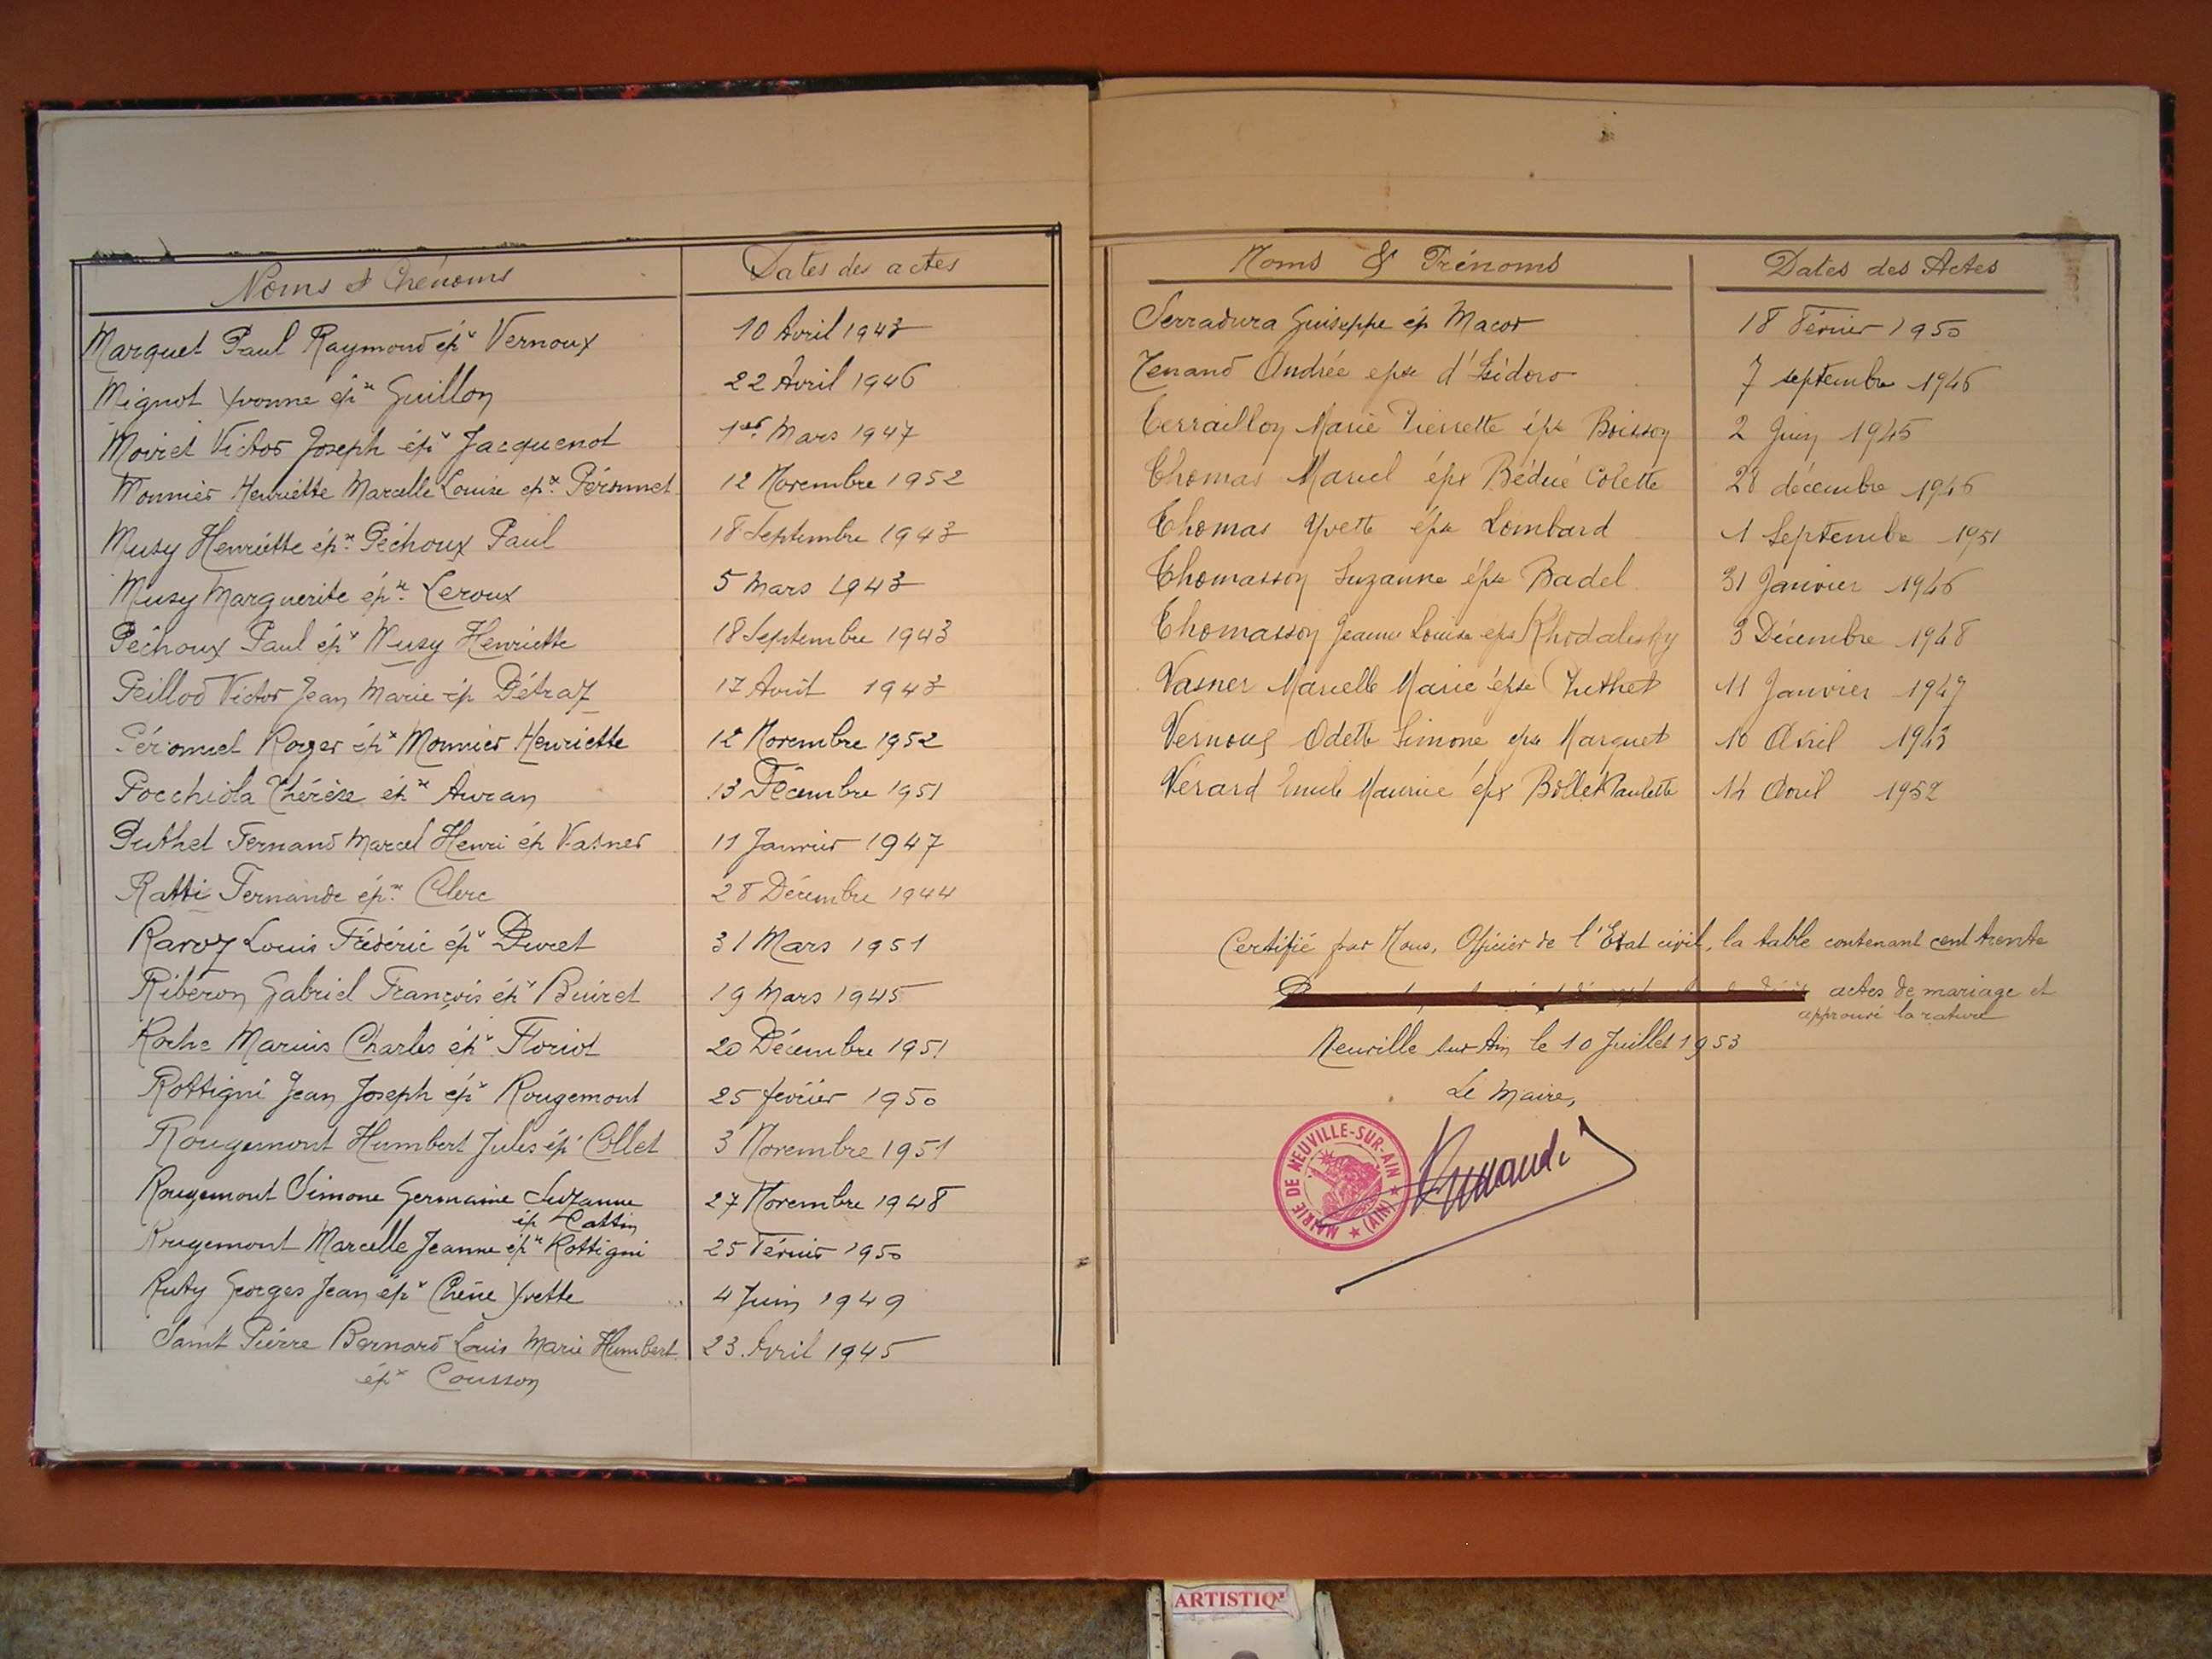 Noms et Prénoms Dates des actes
Marquet Paul Raymond épx Vernoux 10 Avril 1943
Mignot Yvonne épse Guillon 22 Avril 1946
Moiret Victor Joseph épx Jacquenot 1er Mars 1947
Monnier Henriette Marcelle Louise epse Péronnet 12 Novembre 1952
Musy Henriette épse Péchoux Paul 18 Septembre 1943
Musy Marguerite épse Leroux 5 Mars 1943
Péchoux Paul épx Musy Henriette 18 Septembre 1943
Peillod Victor Jean Marie ép Détraz 17 Août 1943
Péronnet Roger épx Monnier Henriette 12 Novembre 1952
Pocchiola Thérèse épse Auran 13 Décembre 1951
Puthet Fernand Marcel Henri ép Vasner 11 Janvier 1947
Ratti Fernande épse Clerc 28 Décembre 1944
Ravoz Louis Frédéric épx Duret 31 Mars 1951
Ribéron Gabriel François épx Buiret 19 Mars 1945
Roche Marius Charles épx Floriot 20 Décembre 1951
Rottigni Jean Joseph épx Rougemont 25 février 1950
Rougemont Humbert Jules épx Collet 3 Novembre 1951
Rougemont Simone Germaine Suzanne 27 Novembre 1948
ép Cattin
Rougemont Marcelle Jeanne épse Rottigni 25 Février 1950
Ruty Georges Jean épx Chêne Yvette 4 Juin 1949
Saint Pierre Bernard Louis Marie Humbert 23 Avril 1945
épx Cousson
Noms & Prénoms Dates des Actes
Serradura Guiseppe ép Macor 18 Février 1950
Tenand Andrée epse d'Isidoro 7 septembre 1946
Terraillon Marie Pierrette épse Boisson 2 Juin 1945
Thomas Marcel épx Béduć Colette 28 décembre 1946
Thomas Yvette épse Lombard 1 Septembre 1951
Thomasson Suzanne épse Badel 31 Janvier 1946
Thomasson Jeanne Louise epse 3 Décembre 1948
Vasner Marcelle Marie épse Puthet 11 Janvier 1947
Vernoux Odette Simone epse Marquet 10 Avril 1943
Vérard Emile Maurice épx Bollet Paulette 14 Avril 1952
Certifié par Nous, Officier de l'Etat civil, la table contenant cent trente
actes de mariage et
approuvé la rature
Neuville sur Ain le 10 Juillet 1953
Le Maire,
MAIRIE DE NEUVILLE-SUR-AIN ★ (AIN) ★
ARTISTIQ